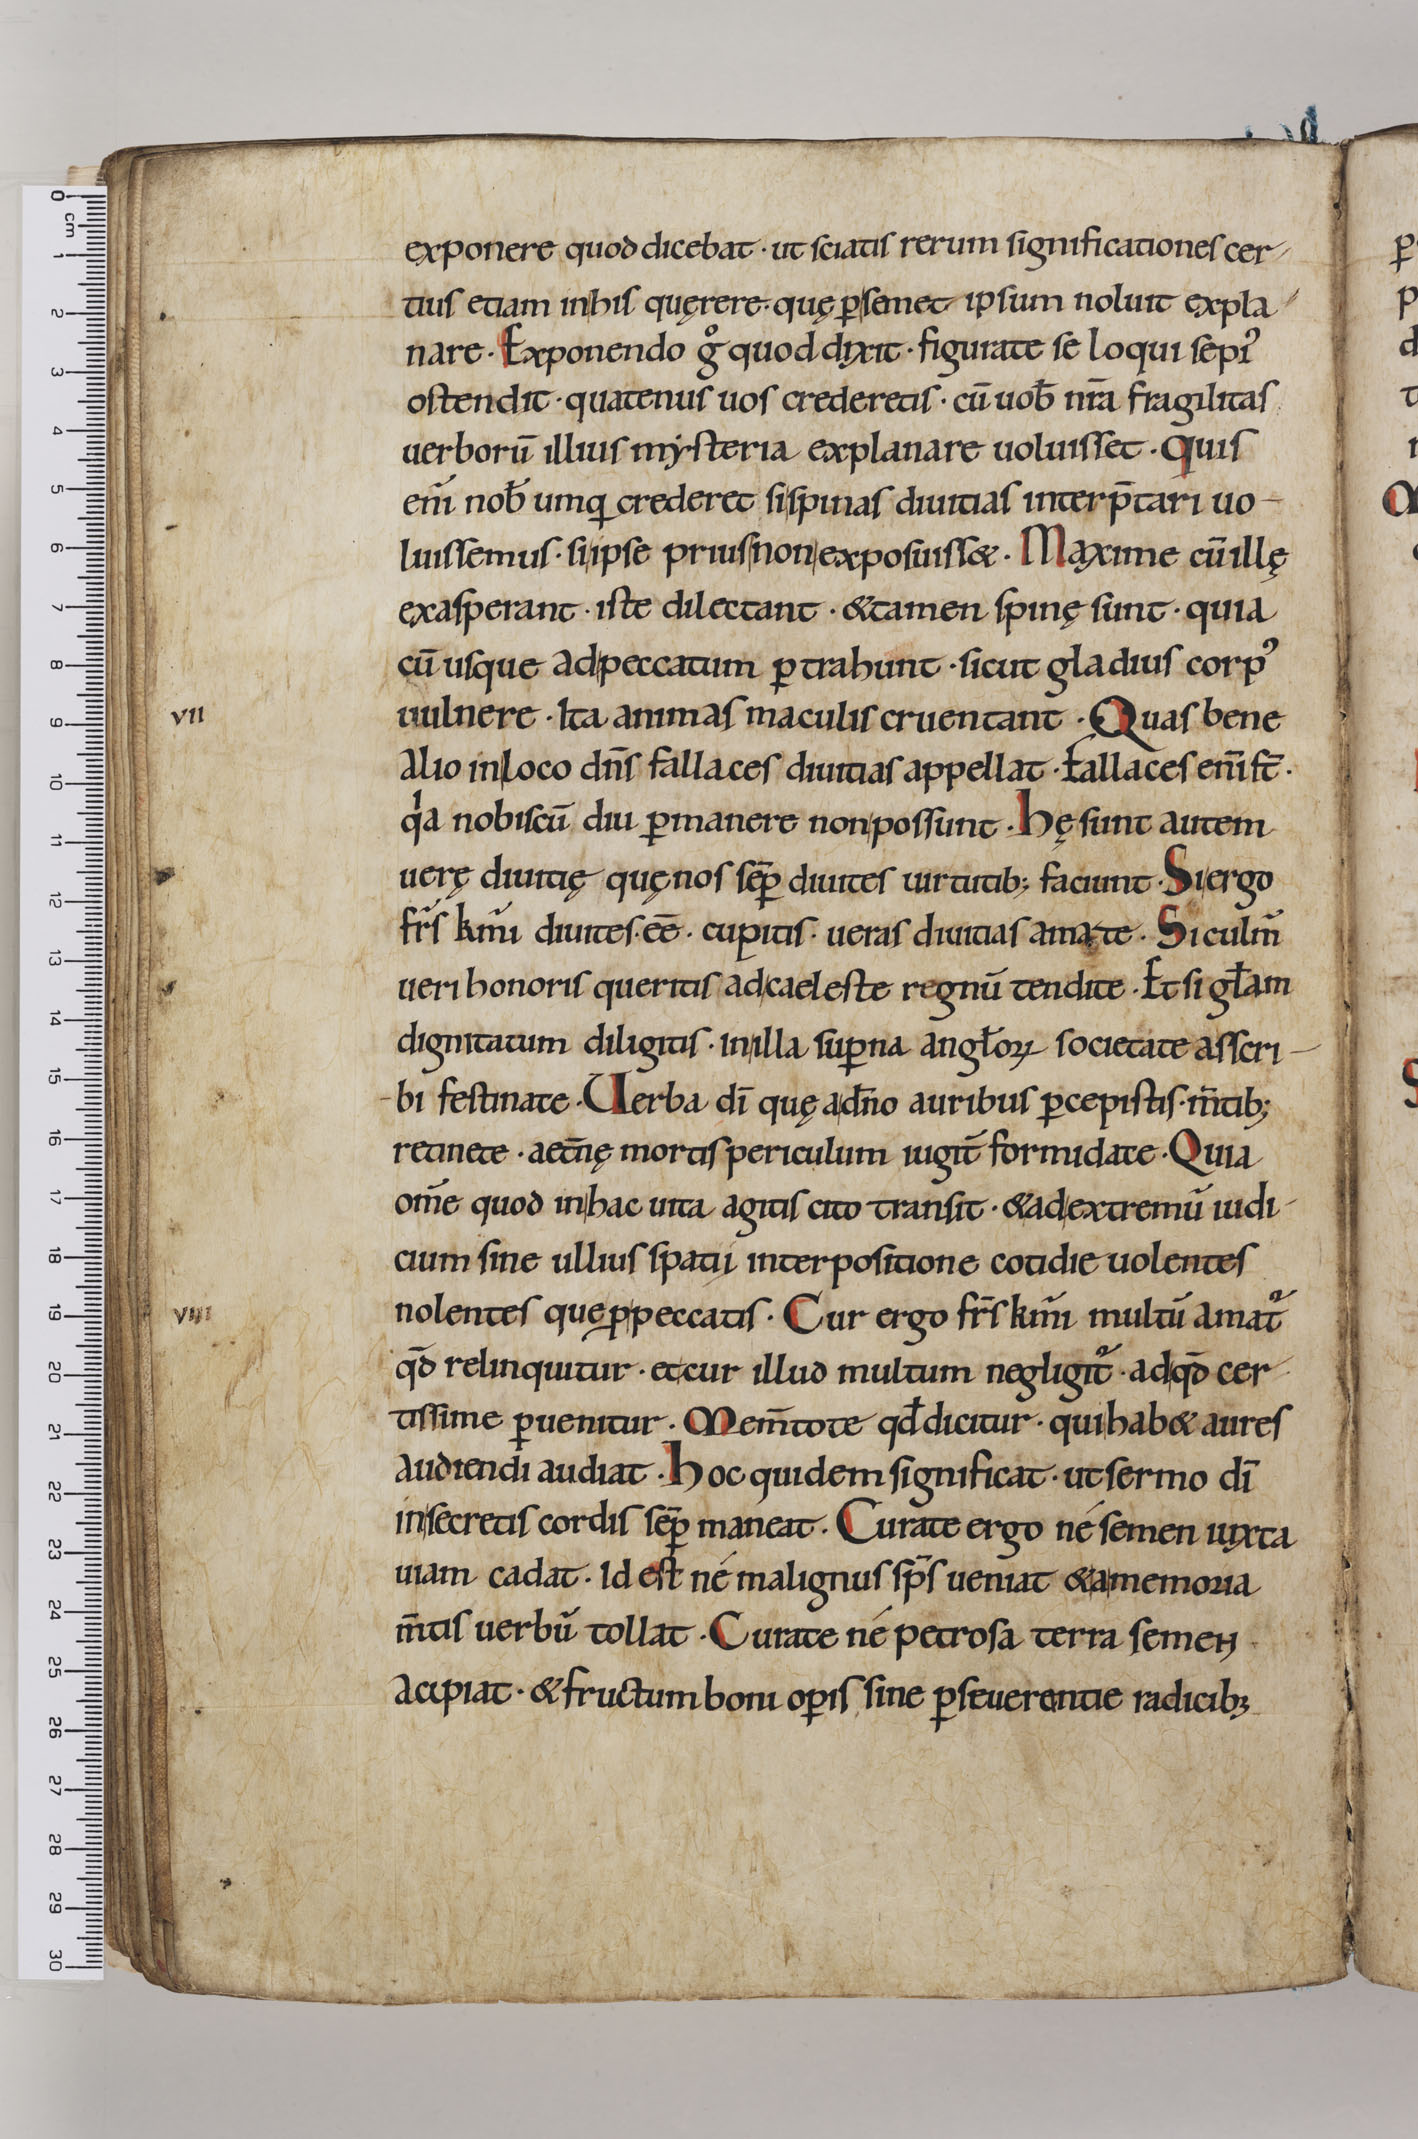 exponere quod dicebat · ut sciatis rerum significationes cer-
tius etiam in his quęrere · quę ꝑ semet ipsum noluit expla-
nare · Exponendo gͦ quod dixit · figurate se loqui sepiꝰ
ostendit · quatenus uos crederetis · cū uob̄ nr̄a fragilitas
uerborū illius mẏsteria explanare uoluisset · Quis
eni̅ nob̄ umq crederet si spinas diuitias interp̄tari uo-
luissemus · si ipse prius non exposuiss& · Maxime cū illę
exasperant · iste dilectant · & tamen spinę sunt · quia
cū usque ad peccatum ꝑtrahunt · sicut gladius corpꝰ
VII
uulnere · Ita animas maculis cruentant · Quas bene
alio in loco dn̄s fallaces diuitias appellat · Fallaces eni̅ st̄ ·
qͥa nobiscū diu ꝑmanere non possunt · Hę sunt autem
uerę diuitię quę nos sēꝑ diuites uirtutib; faciunt · Si ergo
fr̄s km̄i diuites · ee̅ · cupitis · ueras diuitias amate · Si culm̄
ueri honoris queritis ad caeleste regnū tendite · Et si gl̄am
dignitatum diligitis · in illa suꝑna angl̄oꝝ societate asscri-
bi festinate · Uerba dī quę a dn̄o auribus ꝑcepistis · m̄tib;
retinete · aet̄nę mortis periculum iugit̄ formidate · Quia
om̄e quod in hac uita agitis cito transit · & ad extremū iudi-
cium sine ullius spatii interpositione cotidie uolentes
VIII
nolentes que ꝓpeccatis · Cur ergo fr̄s km̄i multū amat᷑
qd̄ relinquitur · et cur illud multum negligit᷑ · ad qd̄ cer-
tissime ꝑuenitur · Mem̄tote qd̄ dicitur · qui hab& aures
audiendi audiat · Hoc quidem significat · ut sermo dī
in secretis cordis sēꝑ maneat · Curate ergo né semen iuxta
uiam cadat · Id est né malignus sp̄s ueniat & a memoria
m̄tis uerbū tollat · Curate né petrosa terra semen
acipiat · & fructum boni oꝑis sine ꝑseuerentie radicib;